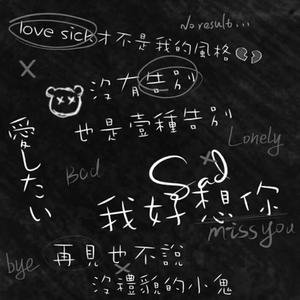 No result...
love sick才不是我的風格
沒有告別
也是壹種告別
愛したい
Lonely
Bad
Sad
我好想你
miss you
bye
再見也不說
沒禮貌的小鬼